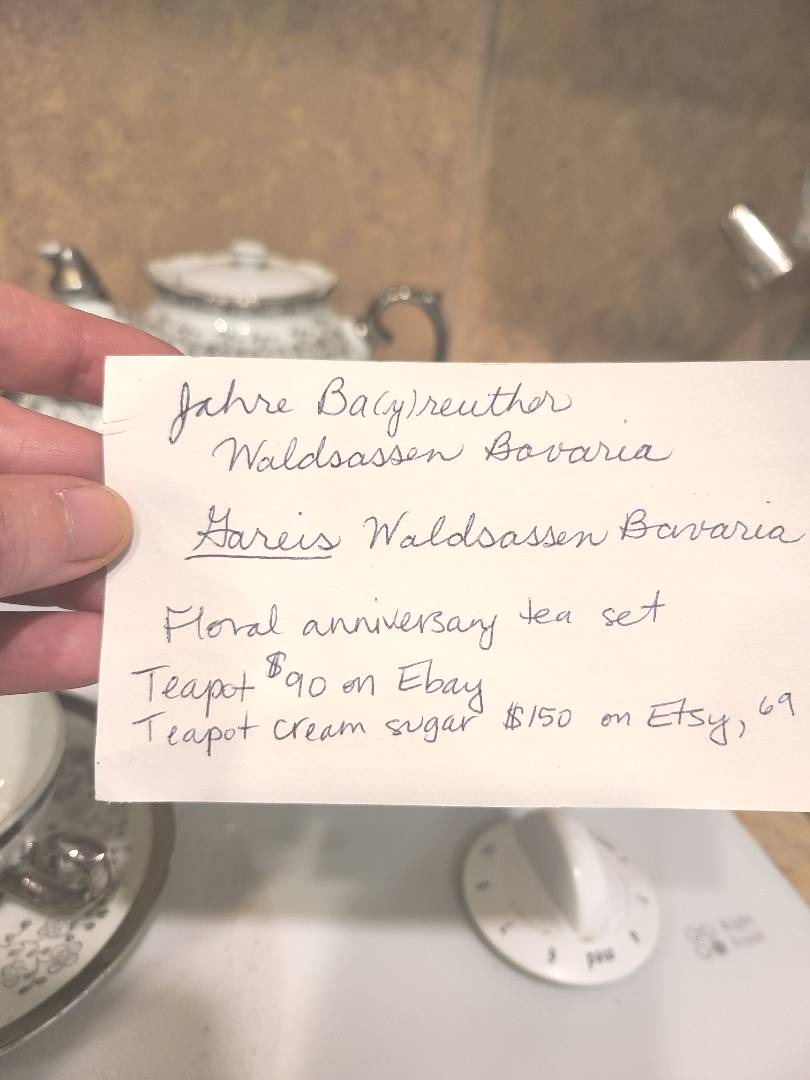 Jahre Ba(y)reuther
Waldsassen Bavaria
Gareis Waldsassen Bavaria
Floral anniversary tea set
Teapot $90 on Ebay
Teapot cream sugar $150 on Etsy, 69
med
Right
Front